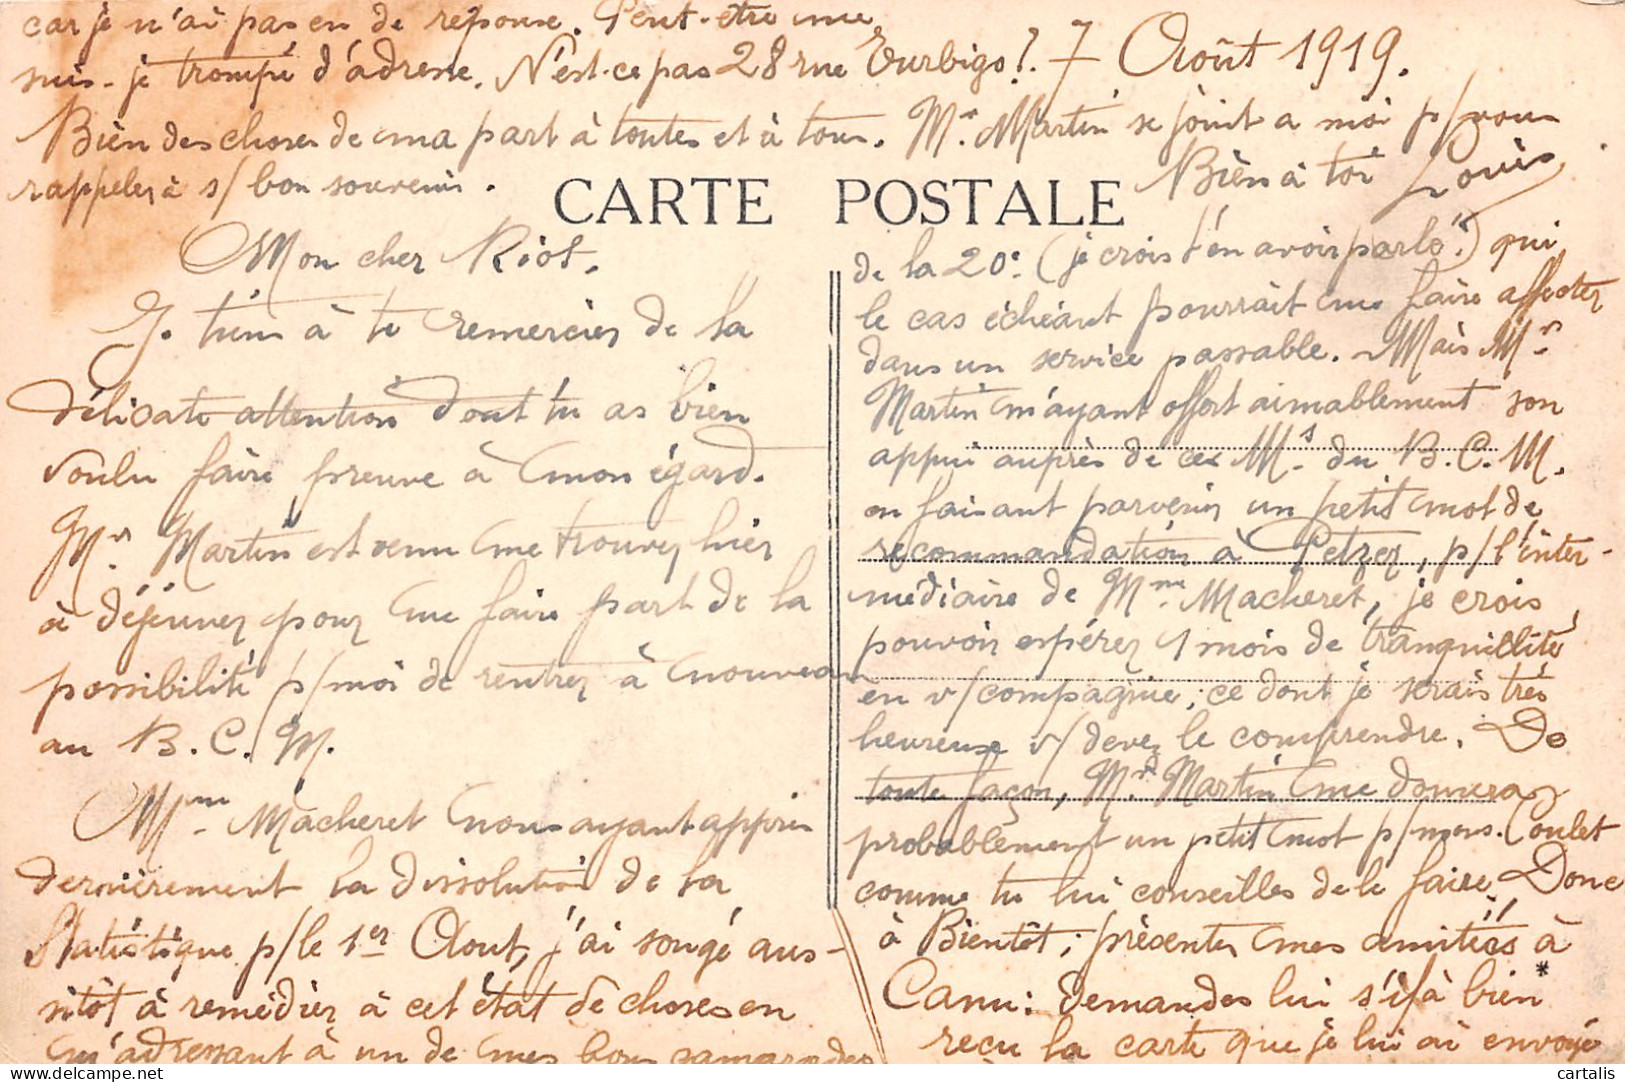 car je n'ai pas eu de réponse. Peut-être me
suis-je trompé d'adresse. N'est-ce pas 28 rue Turbigo?. 7 Août 1919.
Bien des choses de ma part à toutes et à tous. Mr. Martin se joint a moi p/vous
rappeler à s/ bon souvenir. Bien à toi Louis
CARTE POSTALE
Mon cher Riot.
Je tiens à te remercier de la
délicate attention dont tu as bien
voulu faire preuve à mon égard.
Mr. Martin est venu me trouver hier
à déjeuner pour me faire part de la
possibilité p/moi de rentrer à nouveau
au B.C.M.
Mme Macheret nous ayant appris
dernièrement la dissolution de la
Statistique p/le 1er Aout, j'ai songé aus-
sitôt à remédier à cet état de choses en
m'adressant à un de mes bons camarades
de la 20e. (je crois t'en avoir parlé?) qui
le cas échéant pourrait me faire affecter
dans un service passable. Mais Mr.
Martin m'ayant offert aimablement son
appui auprès de ces Ms. du B.C.M.
en faisant parvenir un petit mot de
recommandation à Pelzer, p/l'inter-
médiaire de Mme. Macheret, je crois
pouvoir espérer 1 mois de tranquillité
en v/compagnie; ce dont je serais très
heureuse v/ devez le comprendre. De
toute façon, Mr. Martin me donnera
probablement un petit mot p/mons. Coulet
comme tu lui conseilles de le faire. Donc
à Bientôt; présentes mes amitiés à
Canu: demandes lui s'il à bien *
reçu la carte que je lui ai envoyé
cartalis